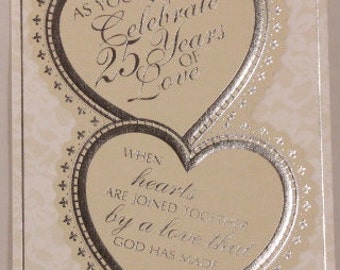 AS YOU
Celebrate
25 Years
OF
Love
WHEN
hearts
ARE JOINED TOGETHER
by a love that
GOD HAS MADE